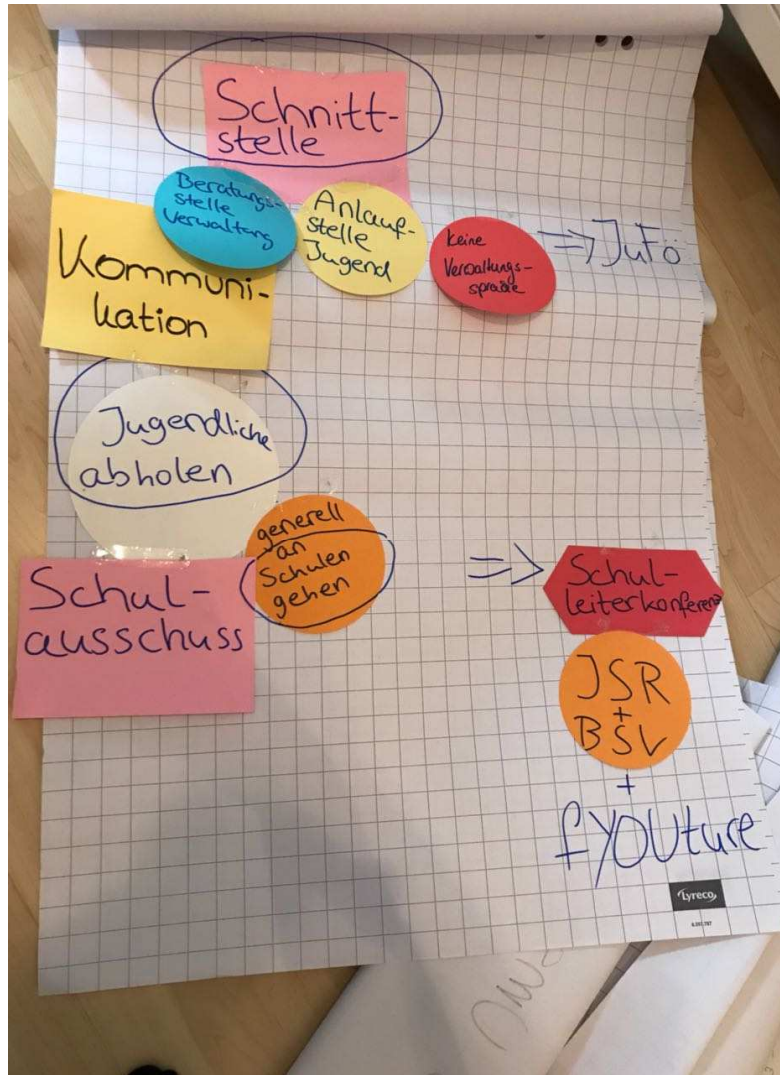 Schnitt-
stelle
Beratungs-
stelle
Verwaltung
Anlauf-
stelle
Jugend
keine
Verwaltungs-
sprache
=> JuFö
Kommuni-
kation
Jugendliche
abholen
generell
an
Schulen
gehen
Schul-
ausschuss
=>
Schul-
leiterkonferenz
JSR
+
BSV
+
fYOUture
Lyreco